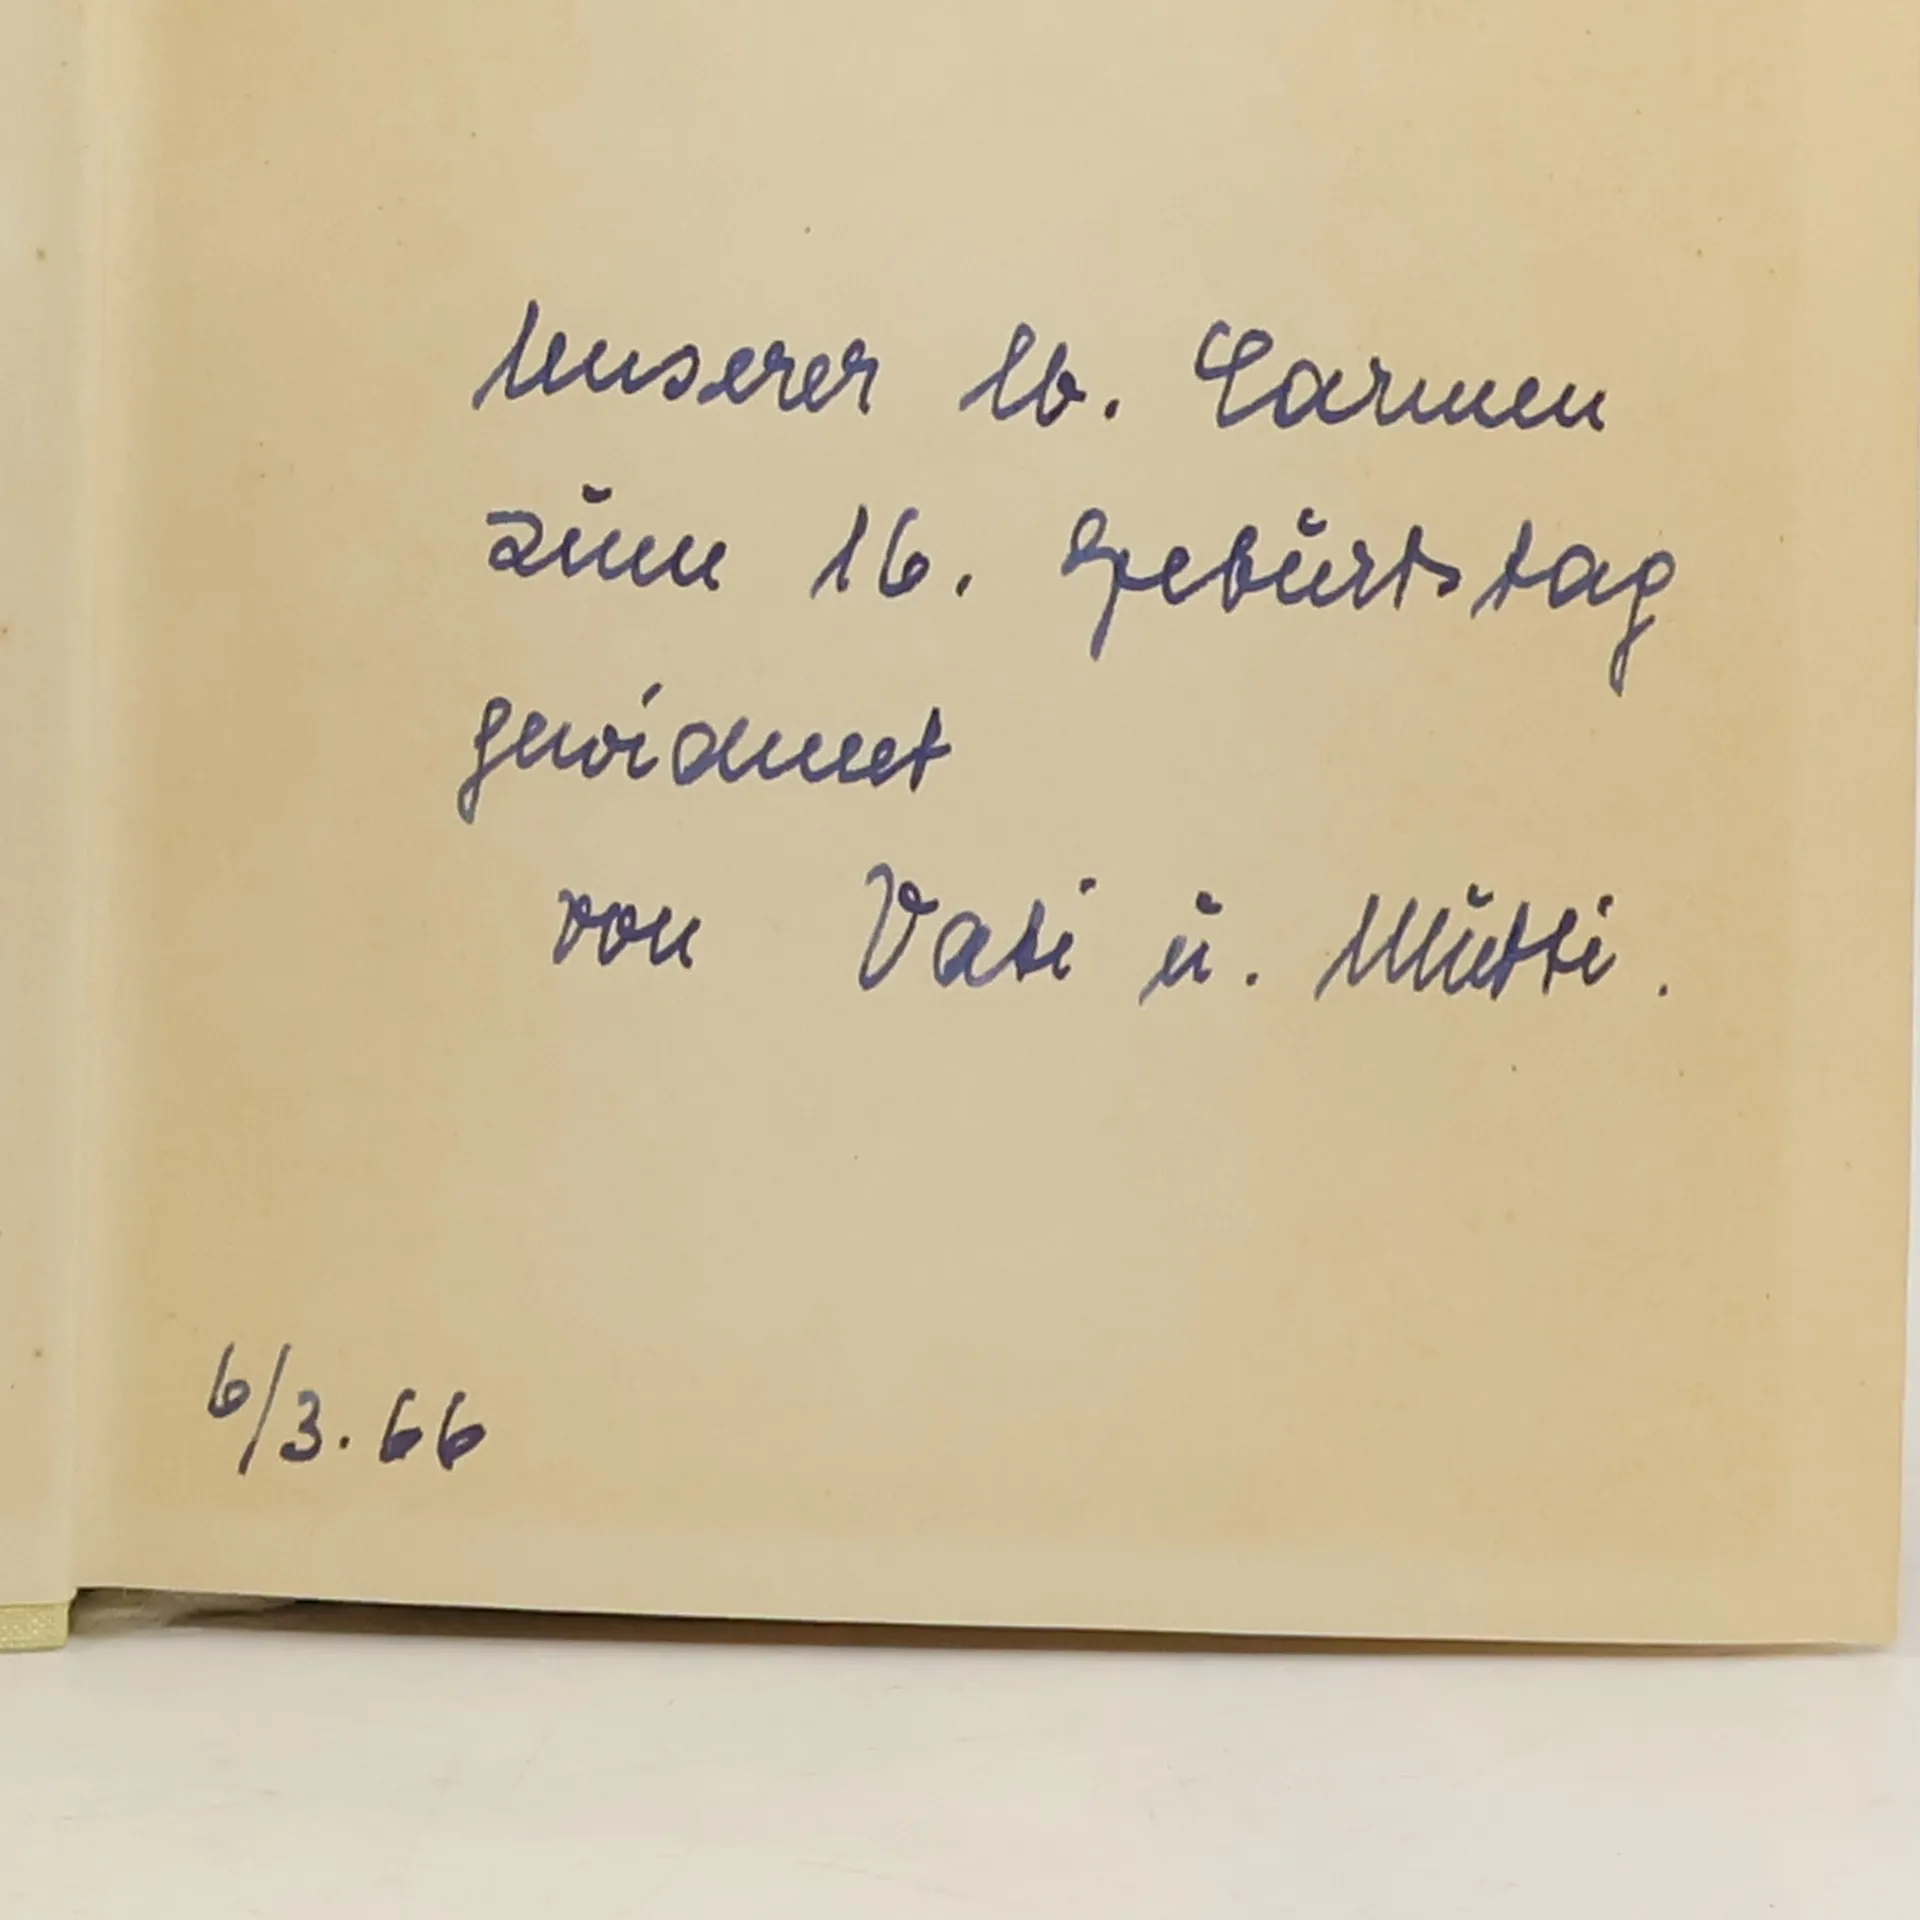 Unserer lb. Carmen
zum 16. Geburtstag
gewidmet
von Vati u. Mutti.
6/3.66